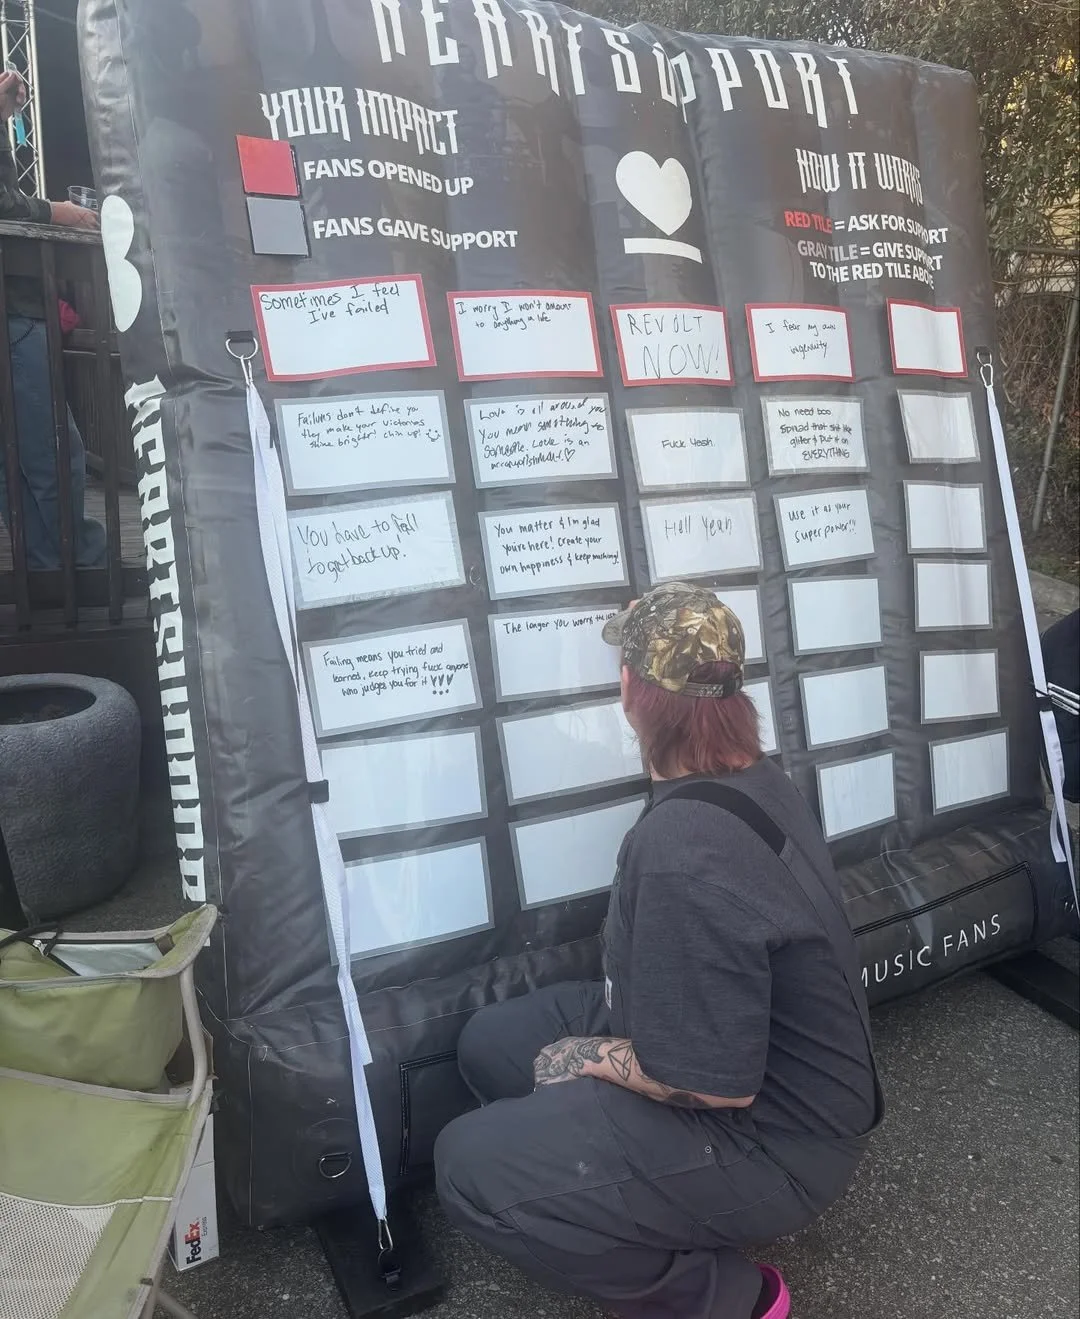 HEARTSUPPORT
YOUR IMPACT
FANS OPENED UP
FANS GAVE SUPPORT
HOW IT WORKS
RED TILE = ASK FOR SUPPORT
GRAY TILE = GIVE SUPPORT
TO THE RED TILE ABOVE
Sometimes I feel
I've failed
I worry I won't amount
to anything in life
REVOLT
NOW!
I fear my own
ingenuity
Failures don't define you
they make your victories
shine brighter! chin up!
Love is all around you
You mean something to
someone. Love is an
accomplishment.♡
Fuck Yeah.
No need boo
Spread that shit like
glitter & put it on
EVERYTHING
You have to fall
to get back up.
You matter & I'm glad
you're here! Create your
own happiness & keep pushing!
Hell Yeah
Use it as your
super power!!
Failing means you tried and
learned, keep trying fuck anyone
who judges you for it ♥♥♥
The longer you worry the
HEARTSUPPORT
MUSIC FANS
FedEx
Express